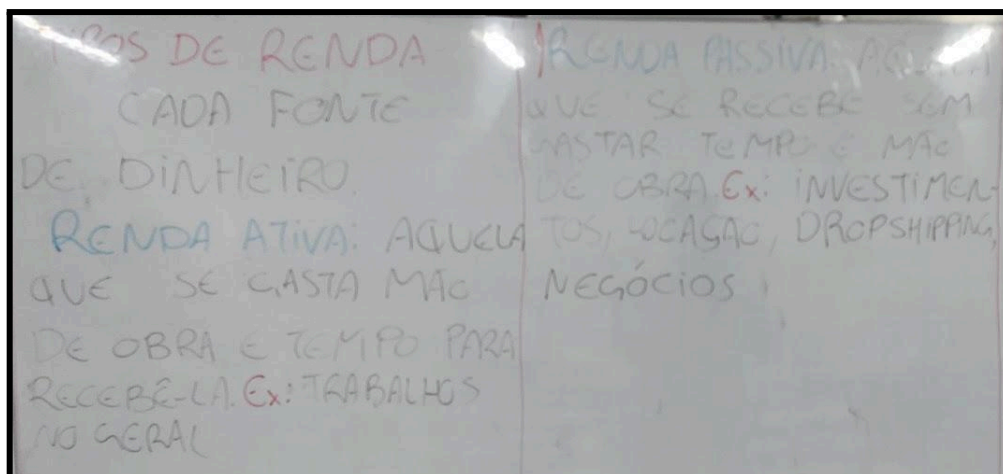 TIPOS DE RENDA
CADA FONTE
DE DINHEIRO.
RENDA ATIVA: AQUELA
QUE SE GASTA MÃO
DE OBRA E TEMPO PARA
RECEBÊ-LA. Ex: TRABALHOS
NO GERAL
RENDA PASSIVA: AQUELA
QUE SE RECEBE SEM
GASTAR TEMPO E MÃO
DE OBRA. Ex: INVESTIMEN-
TOS, LOCAÇÃO, DROPSHIPPING,
NEGÓCIOS